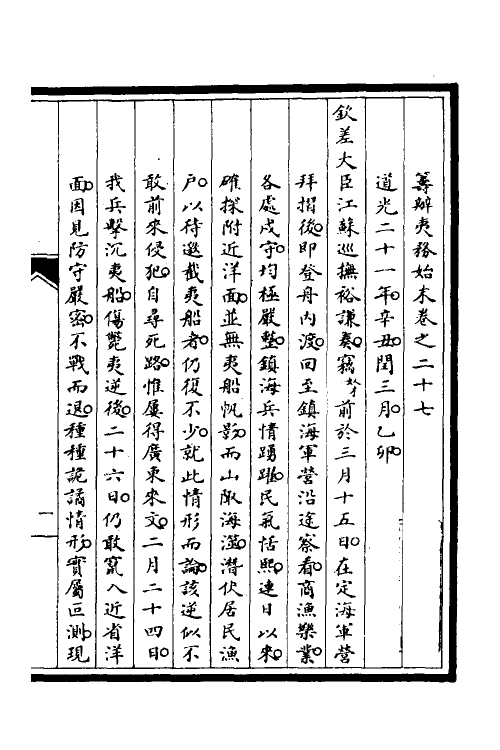 籌辦夷務始末卷之二十七
道光二十一年。辛丑。閏三月。乙卯。
欽差大臣江蘇巡撫裕謙奏。竊才前於三月十五日。在定海軍營
拜摺後。即登舟內渡。回至鎮海軍營沿途察看。商漁樂業。
各處戍守。均極嚴整。鎮海兵情踴躍。民氣恬熙。連日以來。
確探附近洋面。並無夷船帆影。而山陬海澨。潛伏居民漁
戶。以待邀截夷船者。仍復不少。就此情形而論。該逆似不
敢前來侵犯。自尋死路。惟屢得廣東來文。二月二十四日。
我兵擊沉夷船。傷斃夷逆後。二十六日。仍敢竄入近省洋
面。因見防守嚴密。不戰而退。種種詭譎情形。實屬叵測。現
一